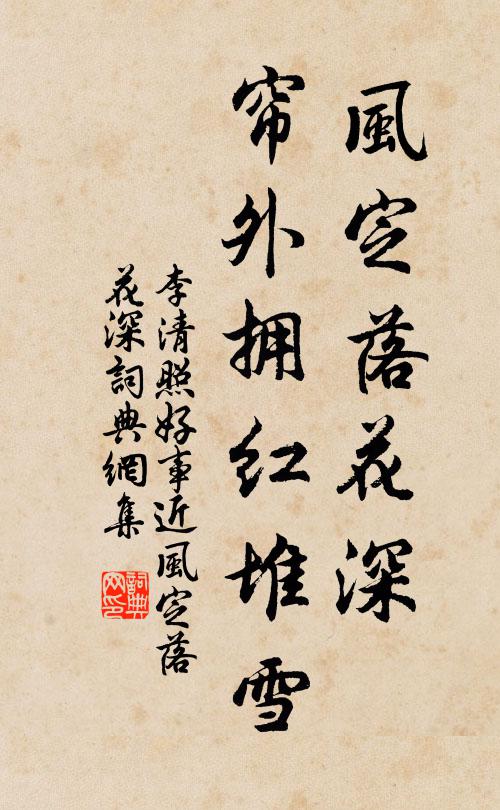 風定落花深
帘外拥红堆雪
李清照好事近風定落
花深詞典網集
詞典
网印